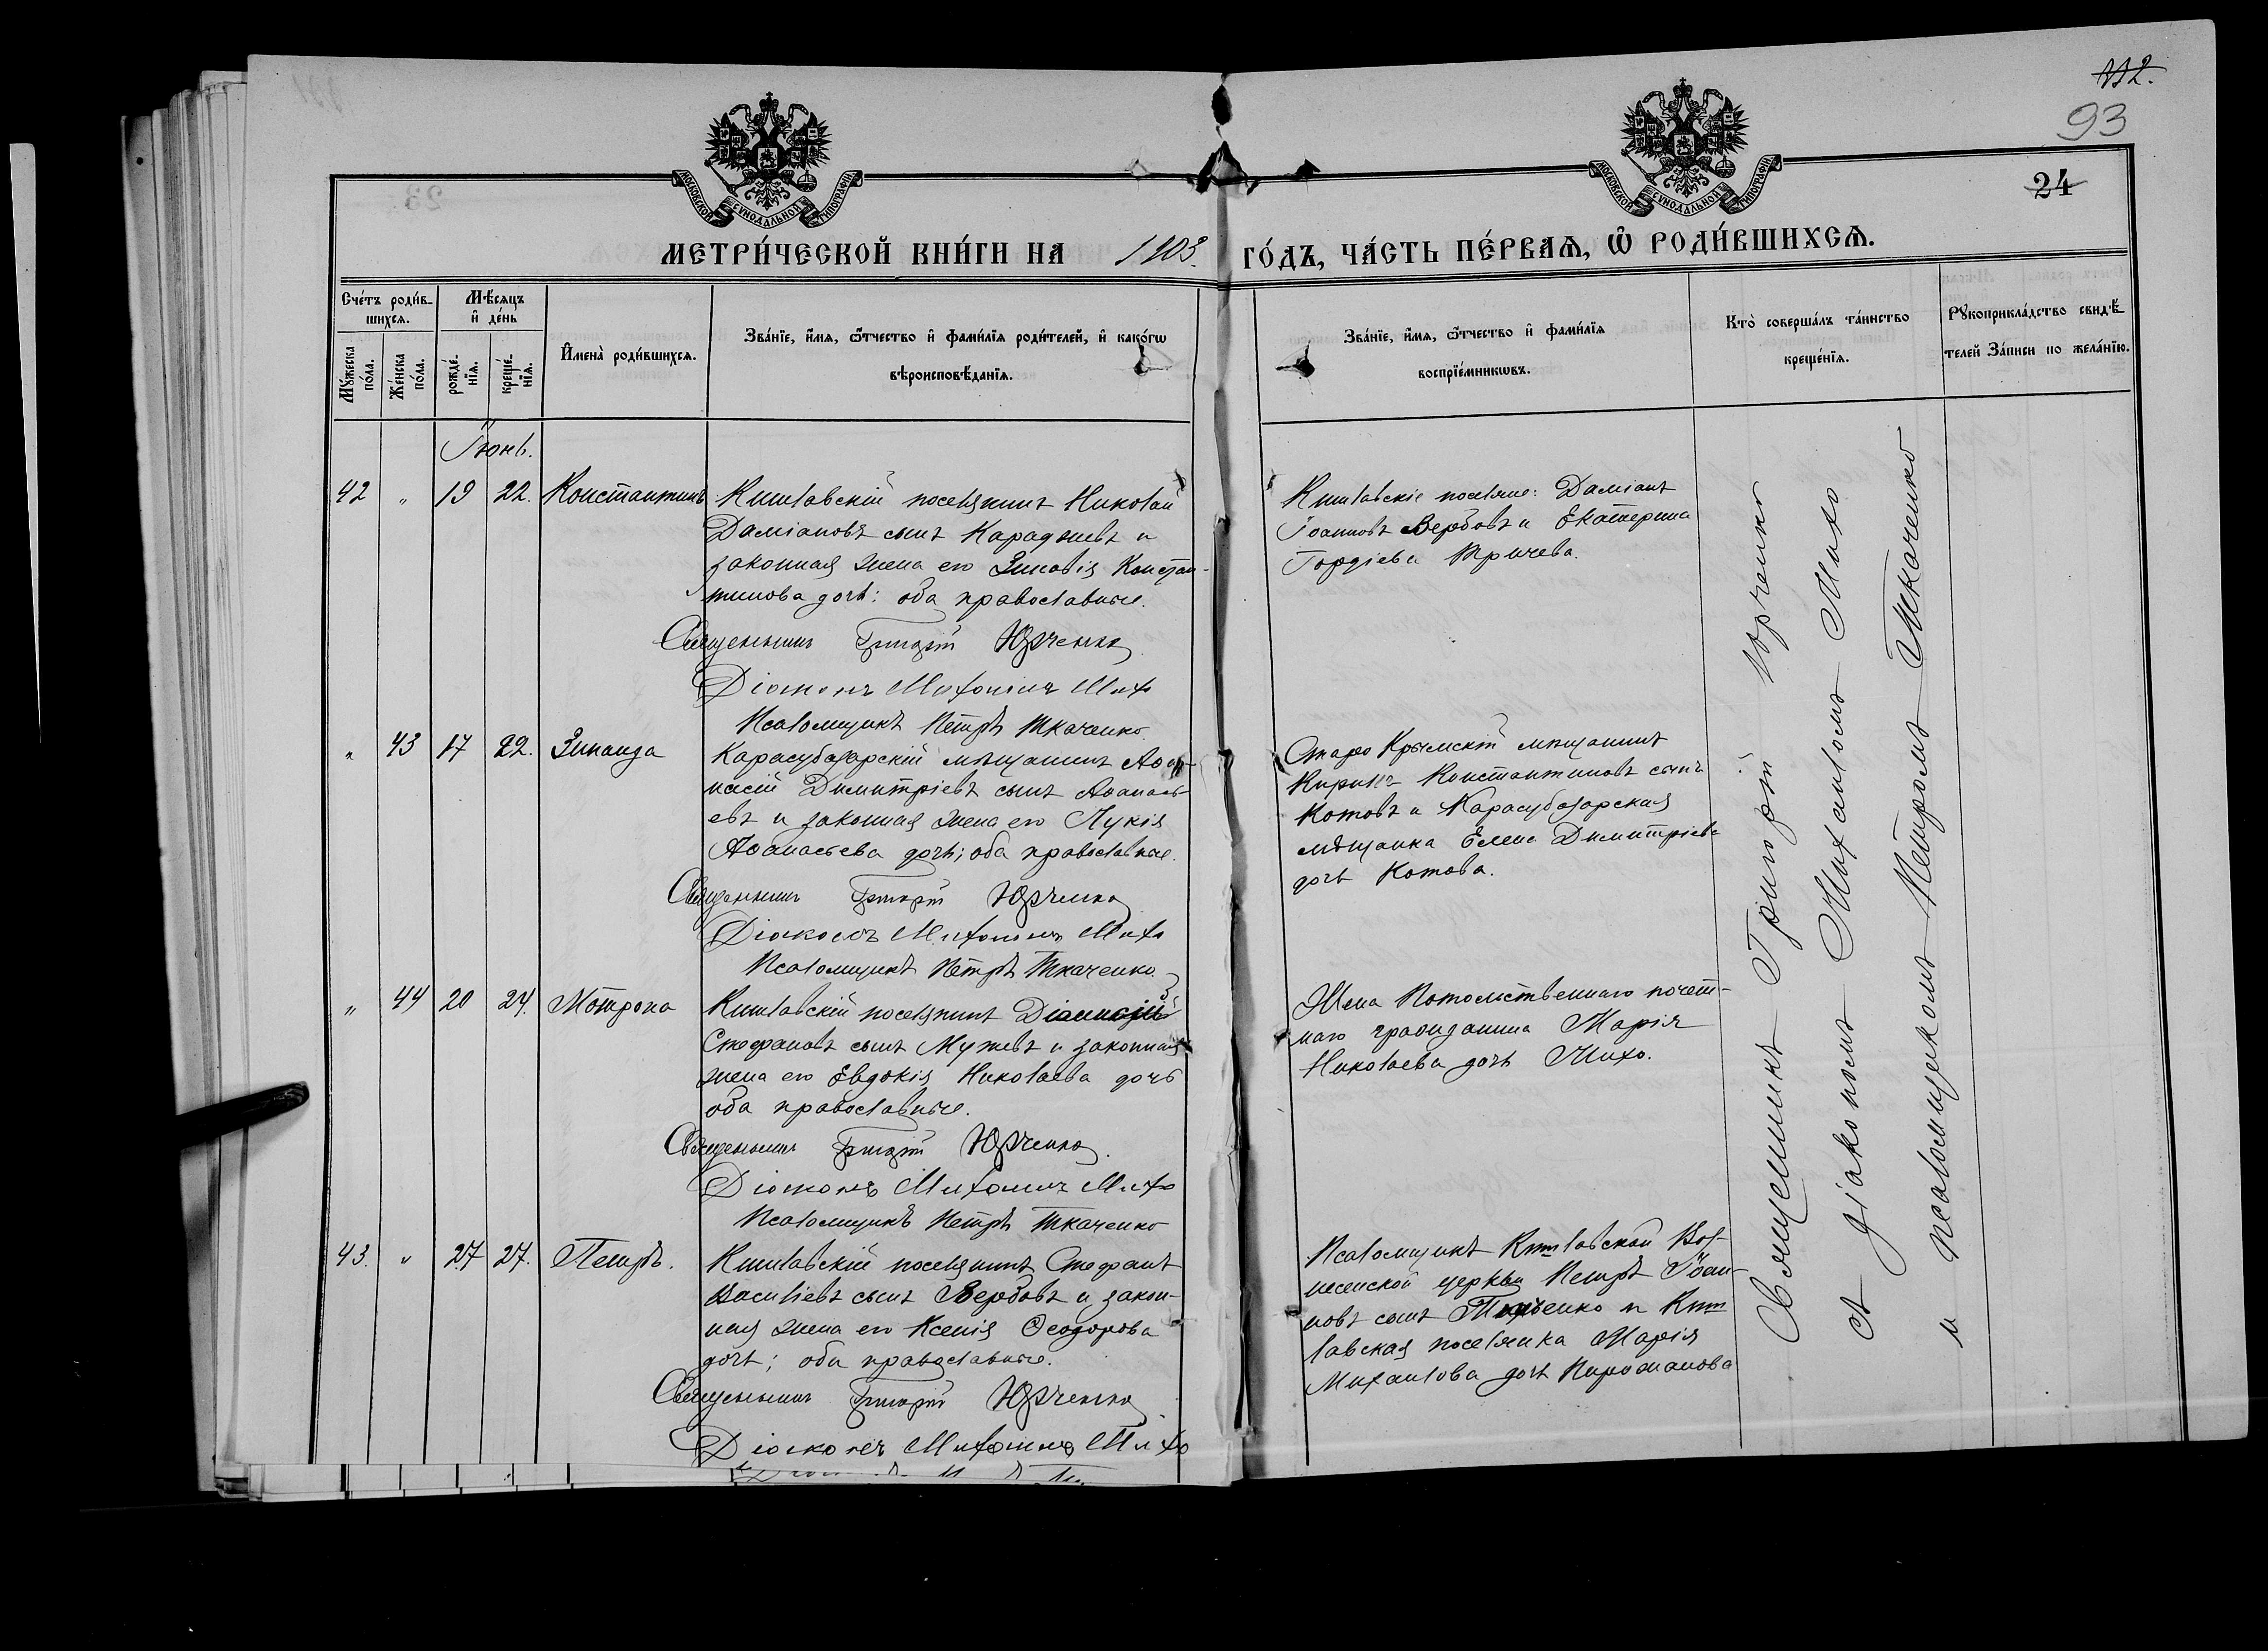 112.
93
24
МОСКОВСКОЙ СѴНОДАЛЬНОЙ ТИПОГРАФІИ
МОСКОВСКОЙ СѴНОДАЛЬНОЙ ТИПОГРАФІИ
МЕТРИ́ЧЕСКОЙ КНИ́ГИ НА 1903. ГО́ДЪ, ЧА́СТЬ ПЕ́РВАѦ, Ѽ РОДИ́ВШИХСѦ.
Сче́тъ роди́в-
шихсѧ.
Мꙋ́жеска по́ла.
Же́нска по́ла.
Мѣ́сѧцъ и҆ де́нь
рожде́-
нїѧ.
креще́-
нїѧ.
И҆мена̀ роди́вшихсѧ.
Зва́нїе, и҆́мѧ, ѻ҆́тчество и҆ фами́лїѧ роди́телей, и҆ како́гѡ
вѣроисповѣ́данїѧ.
Зва́нїе, и҆́мѧ, ѻ҆́тчество и҆ фами́лїѧ
воспрїе́мникѡвъ.
Кто̀ соверша́лъ та́инство
креще́нїѧ.
Рꙋкоприкла́дство свидѣ́-
телей За́писи по жела́нїю.
Іюнь.
42 " 19 22. Константинъ
Кишлавскій поселянинъ Николай
Даміановъ сынъ Караджевъ и
законная жена его Зиновія Констан-
тинова дочь: оба православные.
Священникъ Григорій Юрченко
Діаконъ Михаилъ Михо
Псаломщикъ Петръ Ткаченко.
Кишлавскіе поселяне: Даміанъ
Іоанновъ Вербовъ и Екатерина
Гордіева Тричева.
" 43 17 22. Зинаида
Карасубазарскій мѣщанинъ Аѳа-
насій Димитріевъ сынъ Аѳанась-
евъ и законная жена его Лукія
Аѳанасьева дочь; оба православные.
Священникъ Григорій Юрченко
Діаконъ Михаилъ Михо
Псаломщикъ Петръ Ткаченко
Старо Крымскій мѣщанинъ
Кириллъ Константиновъ сынъ
Котовъ и Карасубазарская
мѣщанка Елена Димитріева
дочь Котова.
" 44 20 24. Мотрона
Кишлавскій поселянинъ Діонисій
Стефановъ сынъ Мужевъ и законная
жена его Евдокія Николаева дочь
оба православные.
Священникъ Григорій Юрченко.
Діаконъ Михаилъ Михо
Псаломщикъ Петръ Ткаченко
Жена Потомственнаго почет-
наго гражданина Марія
Николаева дочь Михо.
43. " 27 27. Петръ.
Кишлавскій поселянинъ Стефанъ
Василіевъ сынъ Вербовъ и закон-
ная жена его Ксенія Ѳеодорова
дочь; оба православные.
Священникъ Григорій Юрченко
Діаконъ Михаилъ Михо
Псаломщикъ Кишлавской Воз-
несенской церкви Петръ Іоан-
новъ сынъ Ткаченко и Киш
лавская поселянка Марія
Михаилова дочь Пироманова
Священникъ Григорій Юрченко
съ діакономъ Михаиломъ Михо
и псаломщикомъ Петромъ Ткаченко